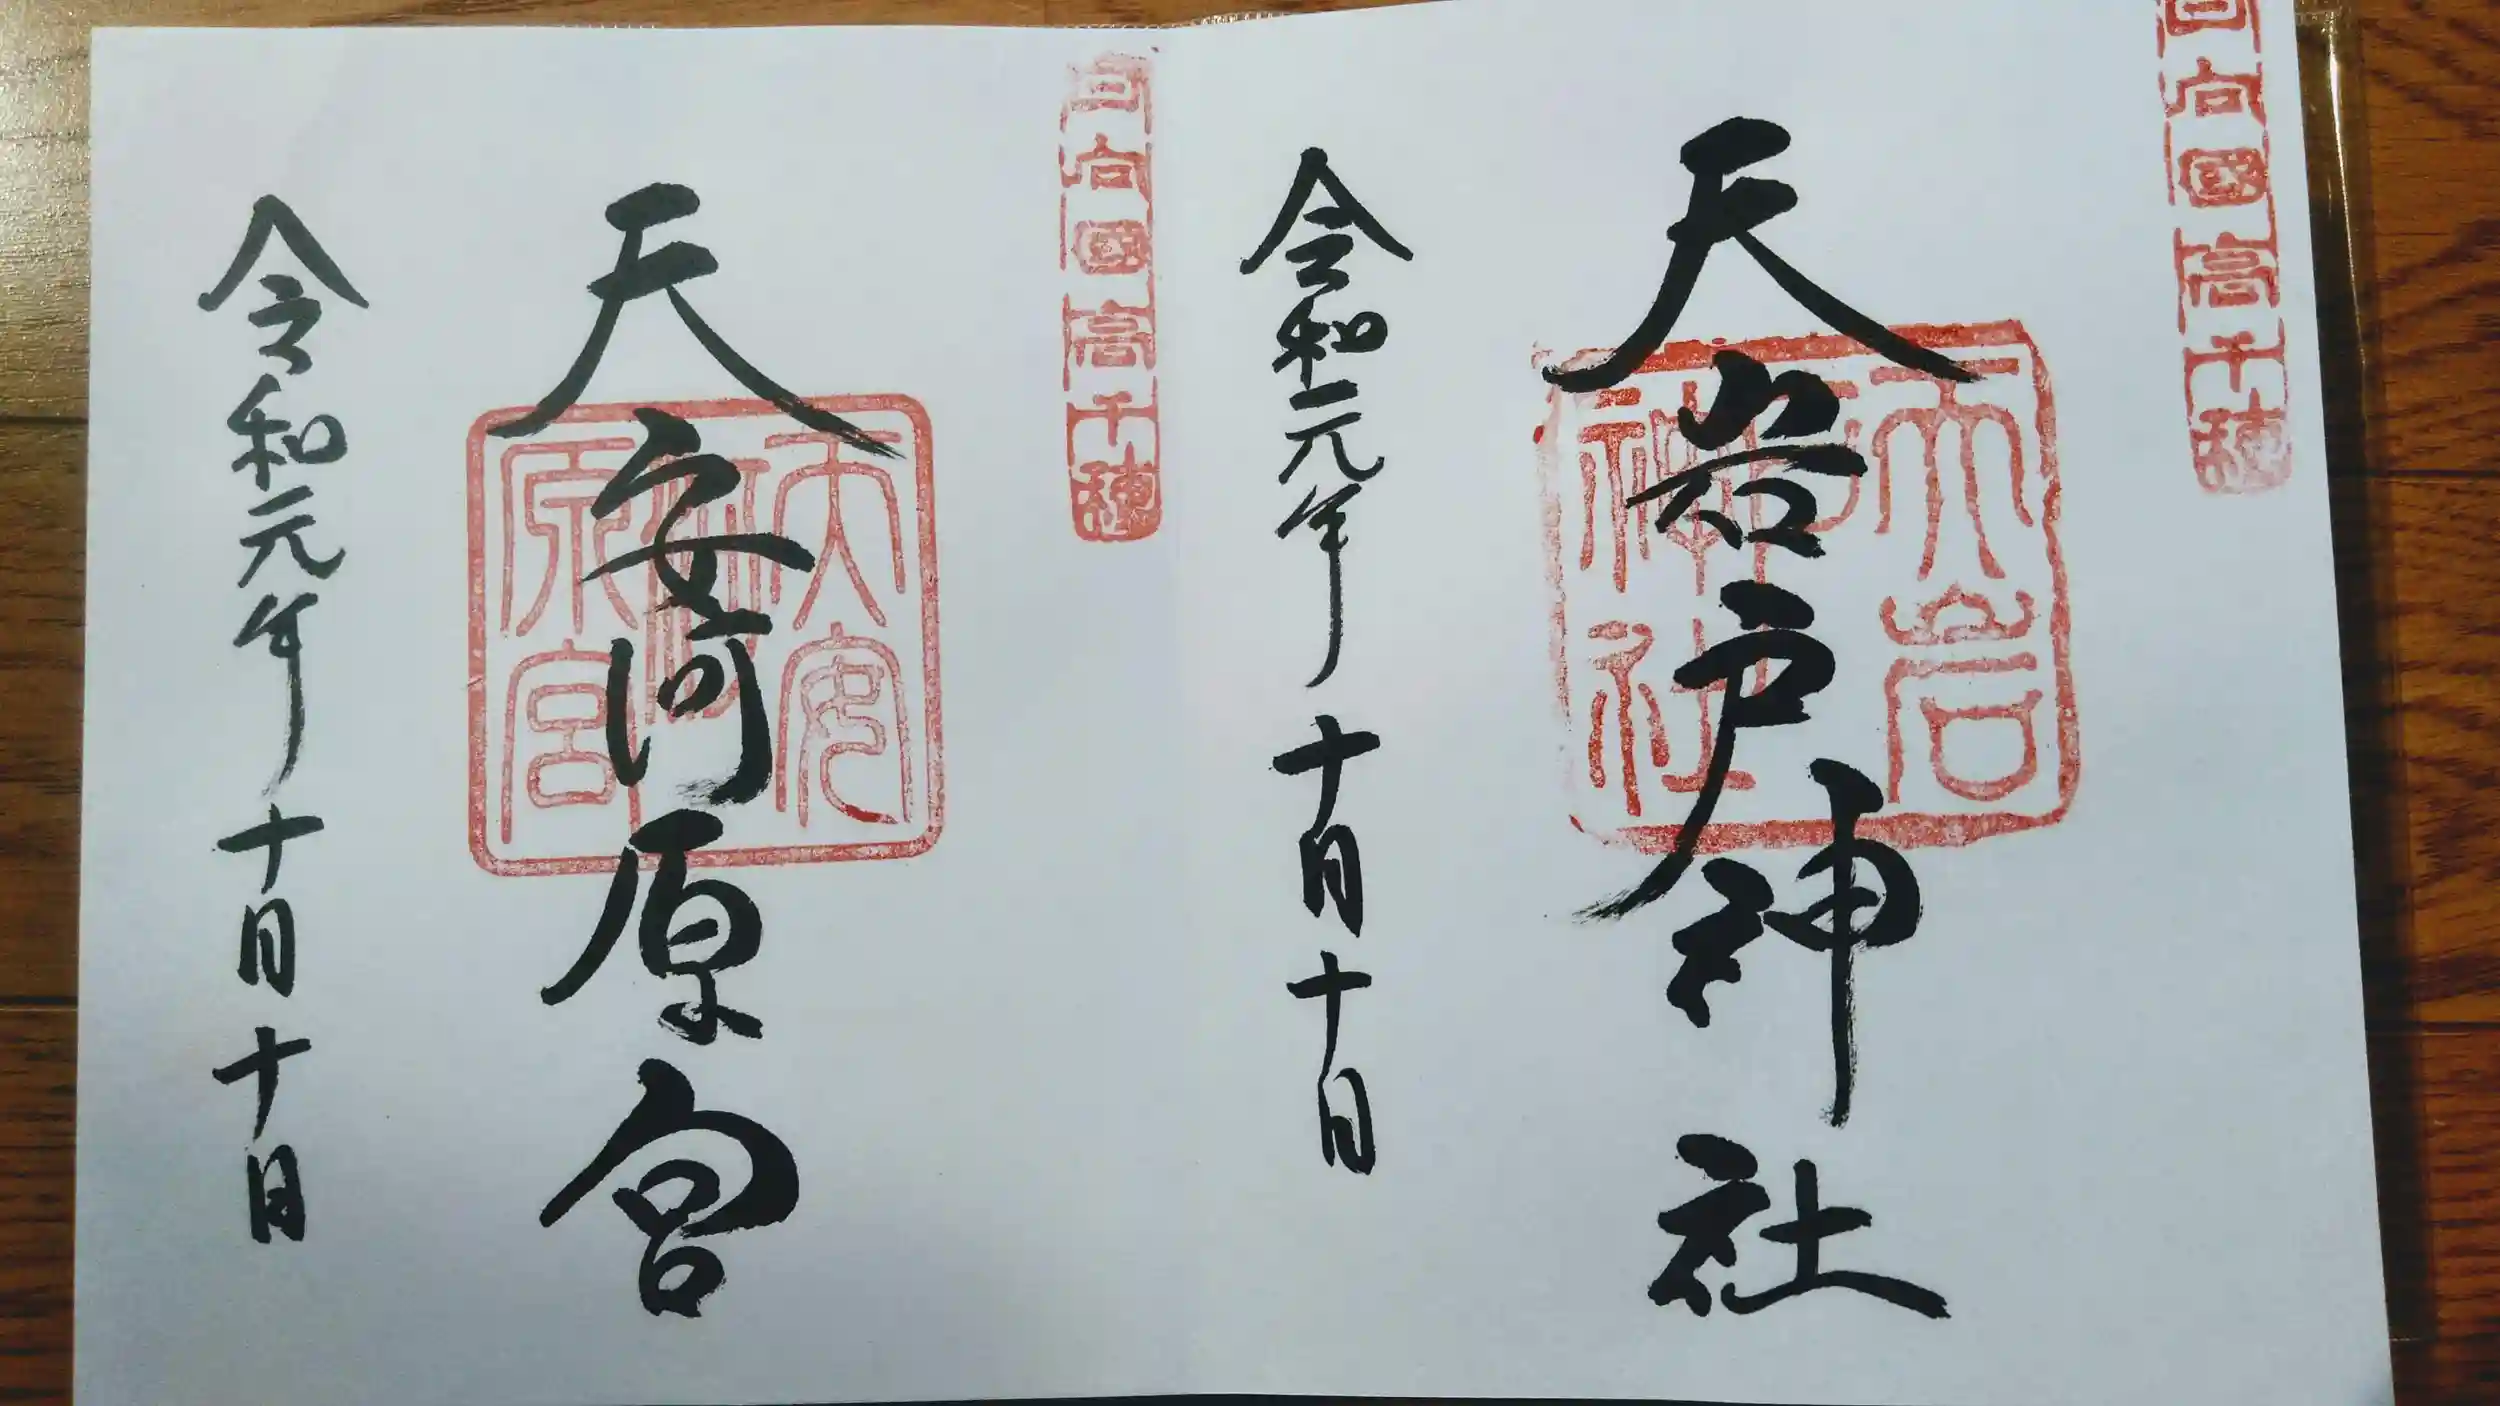 日向國高千穂
天岩戸神社
天岩戸神社
令和元年十月十日
日向國高千穂
天安河原宮
天安河原宮
令和元年十月十日